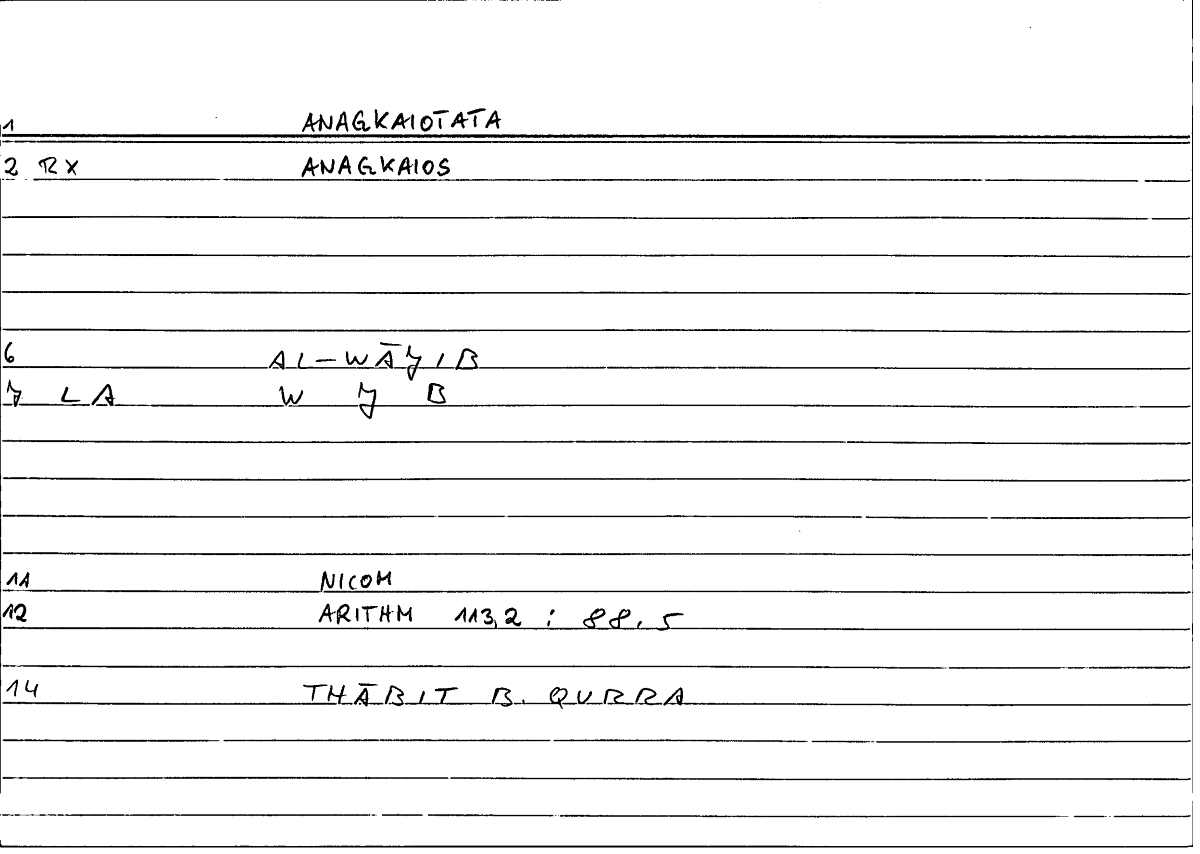 1 ANAGKAIOTATA
2 RX ANAGKAIOS
6 AL-WĀJIB
7 LA W J B
11 NICOM
12 ARITHM 113,2 : 88.5
14 THĀBIT B. QURRA